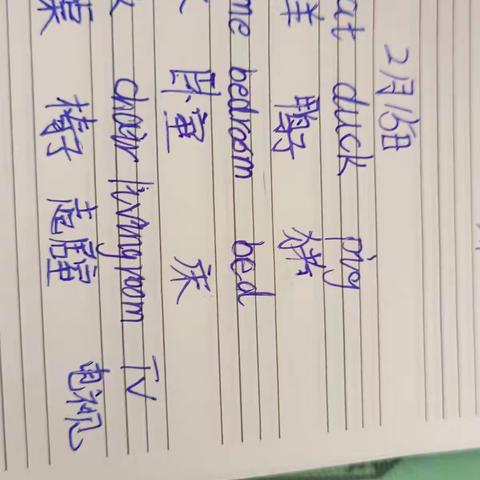 2月15日
at duck pig
羊 鸭子 猪
me bedroom bed
卧室 床
chair living room TV
椅子 起居室 电视